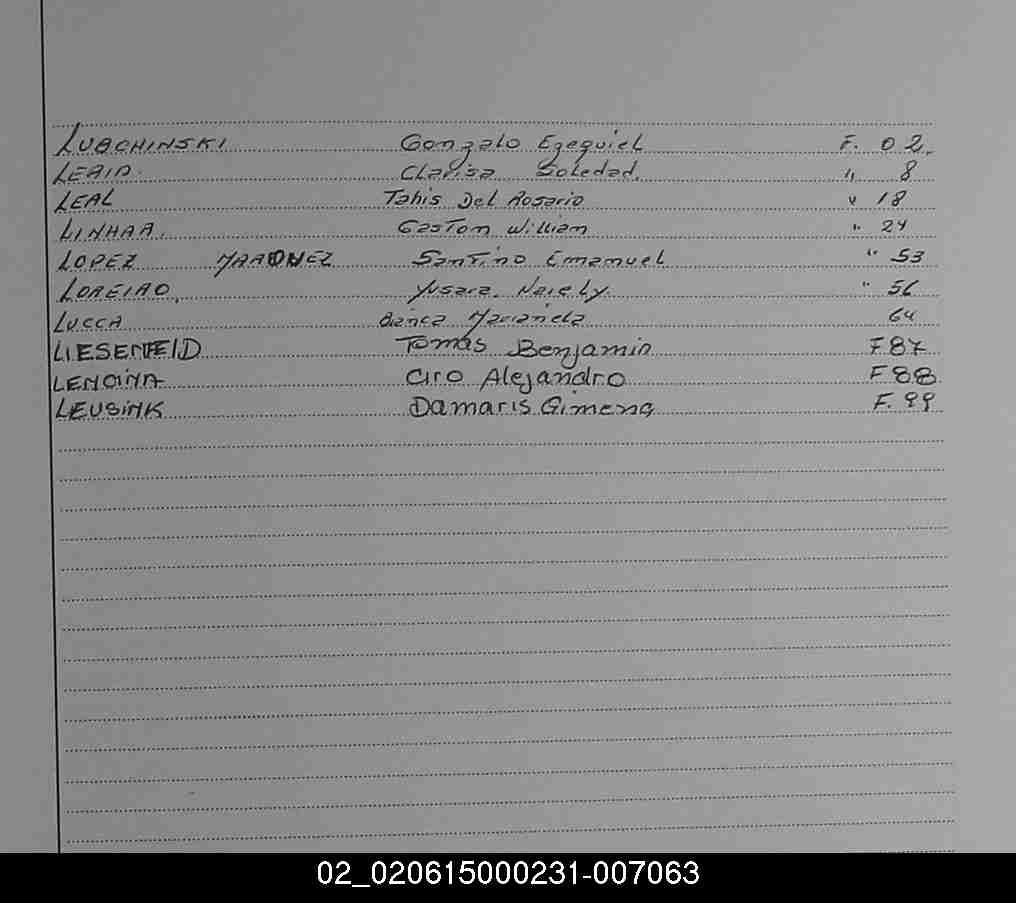 LUBCHINSKI Gonzalo Ezequiel F. 02.
Clarisa Soledad. " 8
LEAL Tahis Del Rosario " 18
LINHAR. Gaston William " 24
LOPEZ MARQUEZ Santino Emanuel " 53
LOREIRO. Yusara. Naiely. " 56
LUCCA Bianca Marianela 64
LIESENFELD Tomás Benjamin F 87
LENCINA Ciro Alejandro F 88
LEUSINK Damaris Gimena F. 99
02_020615000231-007063